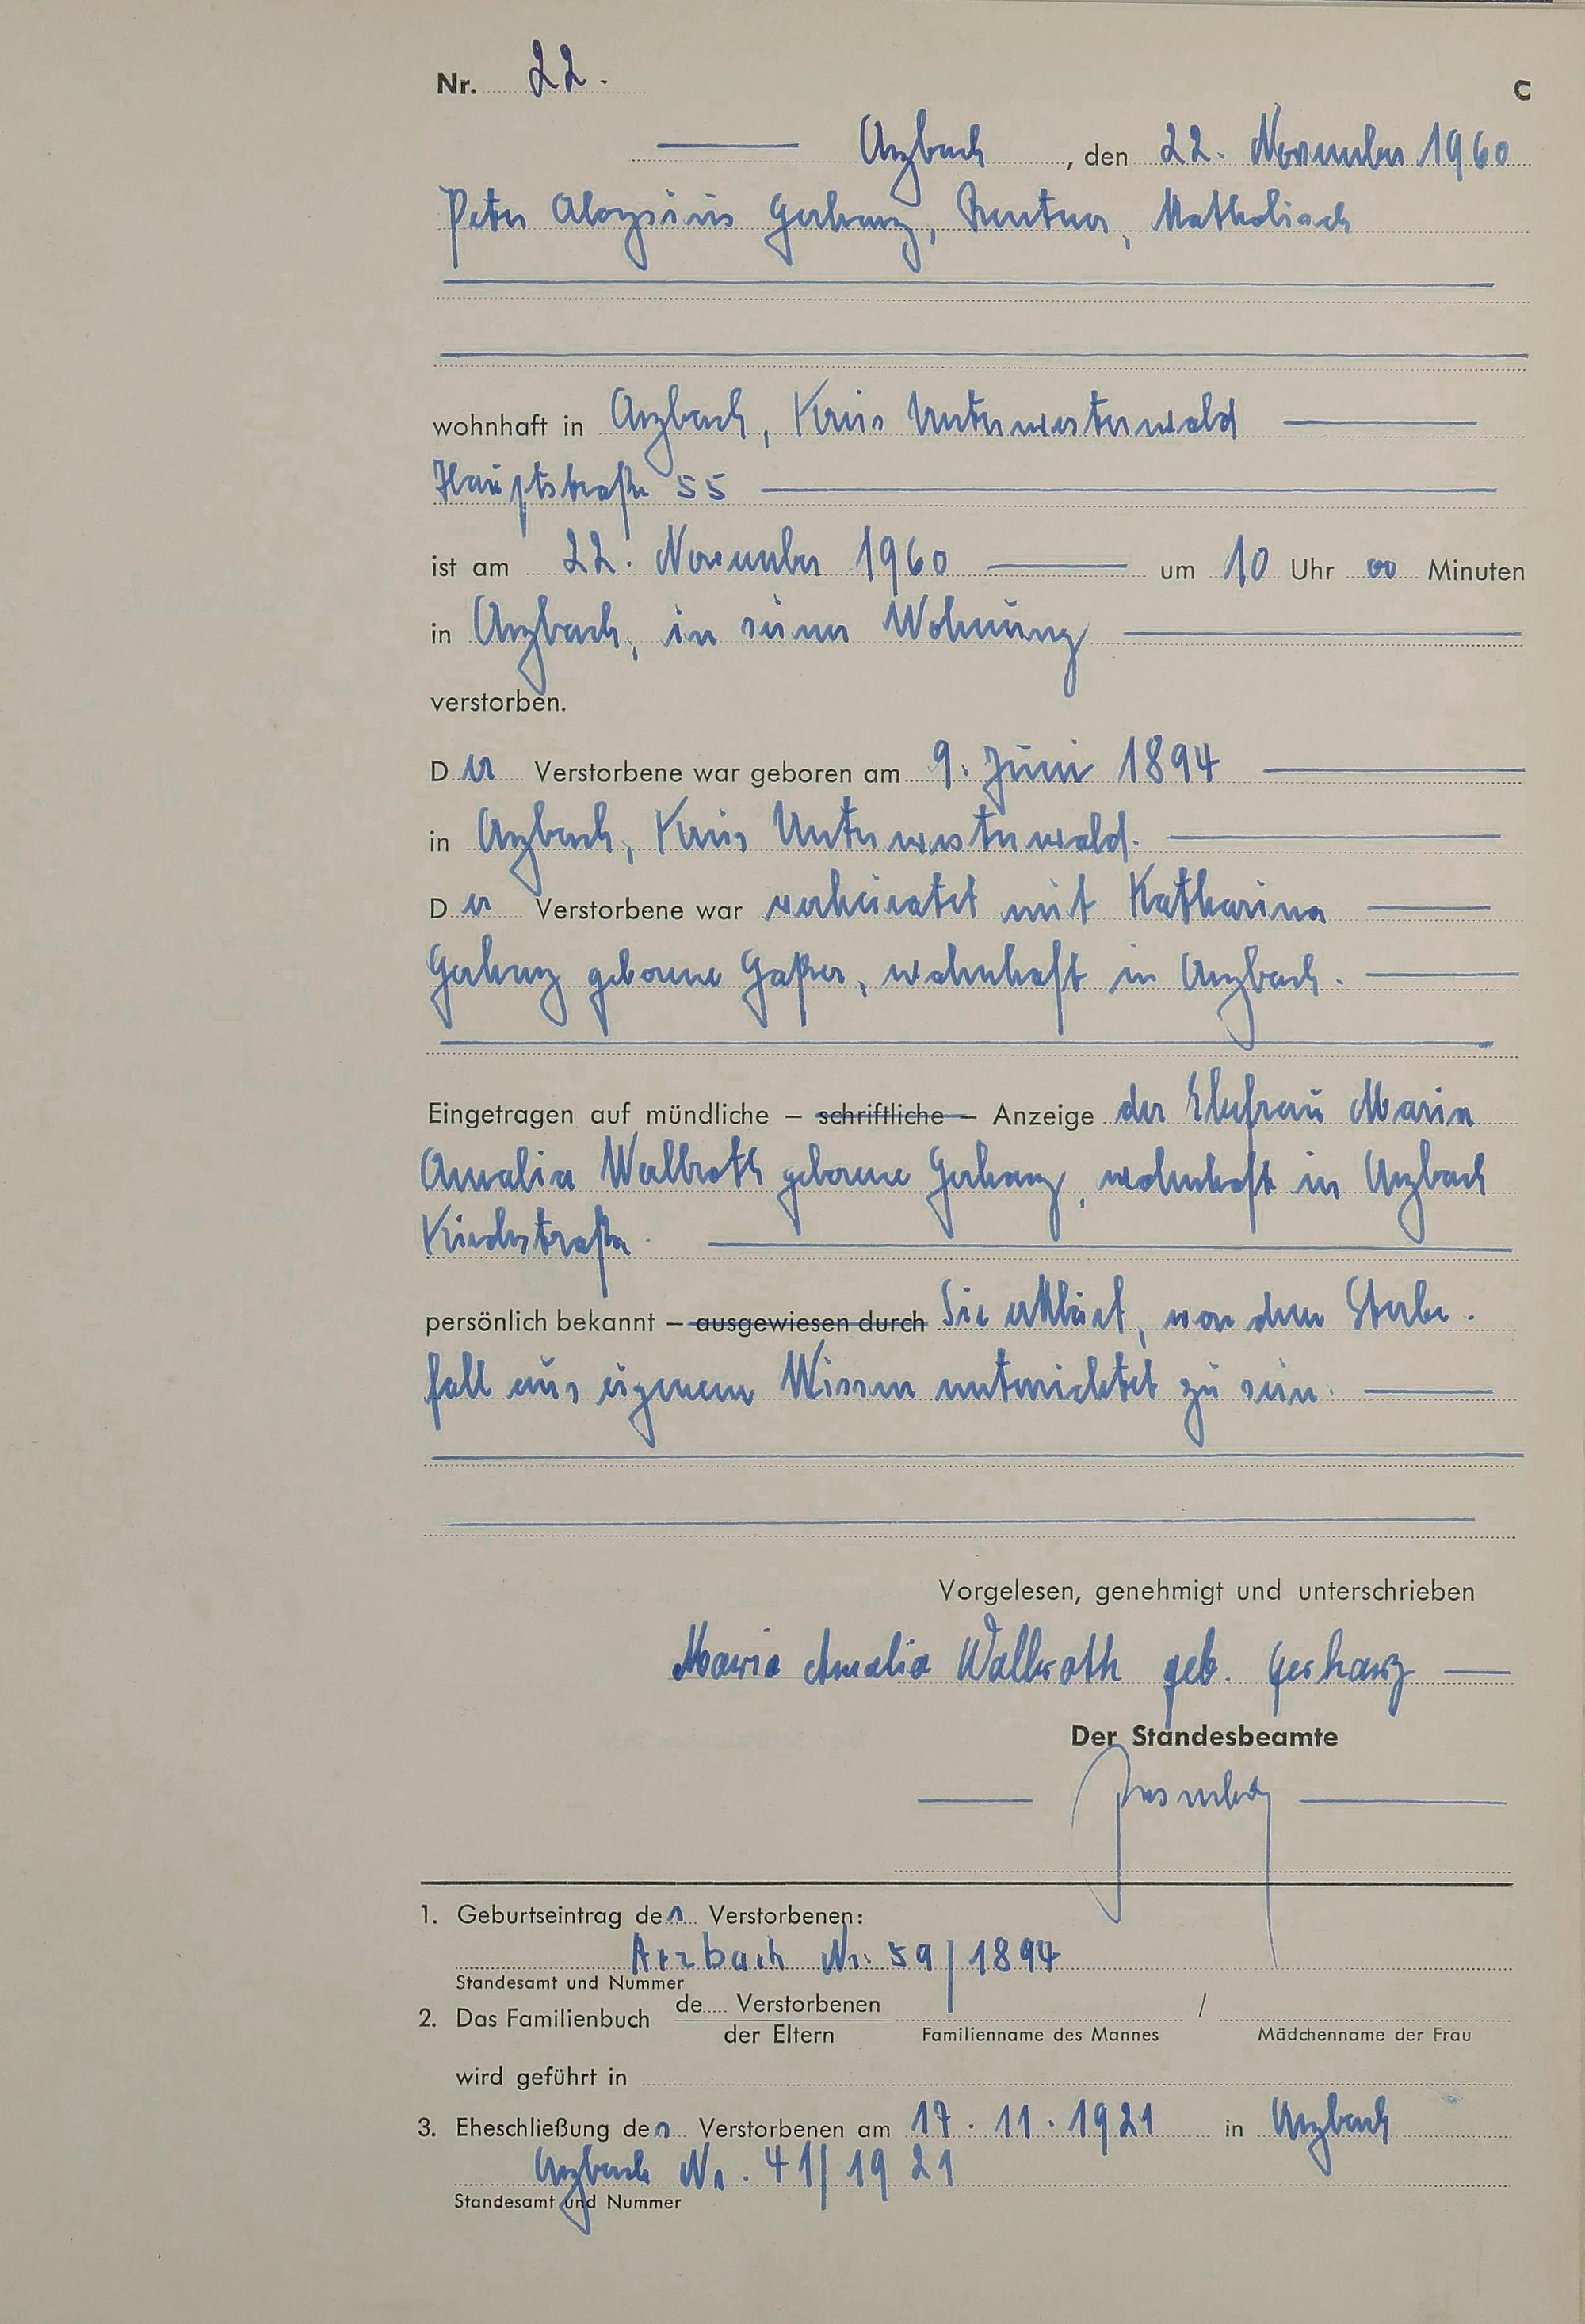 Nr. 22.
C
Arzbach, den 22. November 1960
Peter Aloysius Gerharz, Rentner, Katholisch
wohnhaft in Arzbach, Kreis Unterwesterwald
Hauptstraße 55
ist am 22. November 1960 um 10 Uhr 00 Minuten
in Arzbach, in seiner Wohnung
verstorben.
Der Verstorbene war geboren am 9. Juni 1894
in Arzbach, Kreis Unterwesterwald.
Der Verstorbene war verheiratet mit Katharina
Gerharz geborene Gaßer, wohnhaft in Arzbach.
Eingetragen auf mündliche – schriftliche – Anzeige der Ehefrau Maria
Amalia Wallroth geborene Gerharz, wohnhaft in Arzbach
Kirchstraße.
persönlich bekannt – ausgewiesen durch Sie erklärt, von dem Sterbe-
fall aus eigenem Wissen unterrichtet zu sein.
Vorgelesen, genehmigt und unterschrieben
Maria Amalia Wallroth geb. Gerharz
Der Standesbeamte
1. Geburtseintrag des Verstorbenen:
Arzbach Nr. 59/1894
Standesamt und Nummer
2. Das Familienbuch de.... Verstorbenen
der Eltern
/
Familienname des Mannes Mädchenname der Frau
wird geführt in
3. Eheschließung des Verstorbenen am 17.11.1921 in Arzbach
Arzbach Nr. 41/1921
Standesamt und Nummer